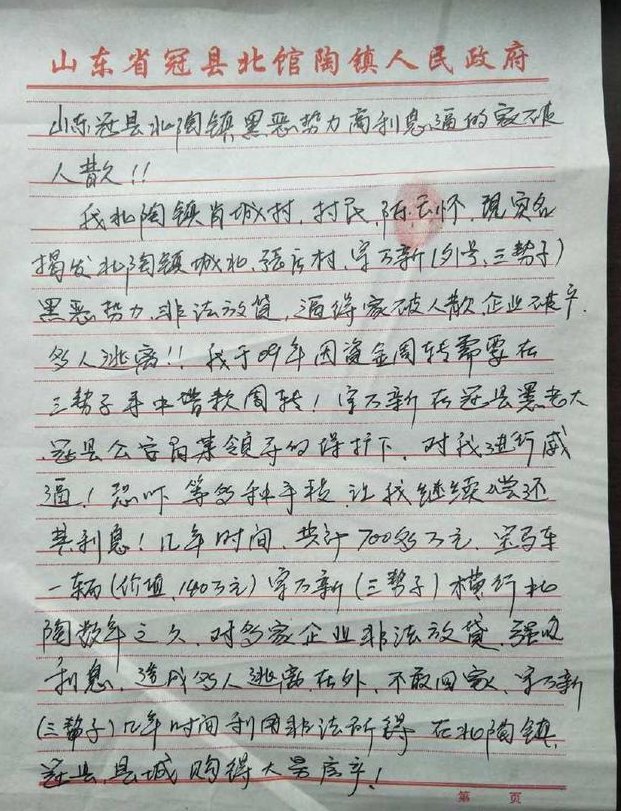 山东省冠县北馆陶镇人民政府
山东冠县北陶镇黑恶势力高利息逼的家破
人散!!
我北陶镇肖城村,村民,陈云怀,现实名
揭发北陶镇城北,张庄村,宋万新(外号,三帮子)
黑恶势力,非法放贷,逼得家破人散,企业破产,
多人逃离!!我于09年因资金周转需要在
三帮子手中借款周转!宋万新在冠县黑老大
冠县公安局某领导的保护下,对我进行威
逼!恐吓等多种手段,让我继续偿还
其利息!几年时间,共计700多万元,宝马车
一辆(价值,140万元)宋万新(三帮子)横行北
陶数年之久,对多家企业非法放贷,强收
利息,造成多人逃离在外,不敢回家,宋万新
(三帮子)几年时间利用非法所得在北陶镇,
冠县,县城购得大量房产!
第 页